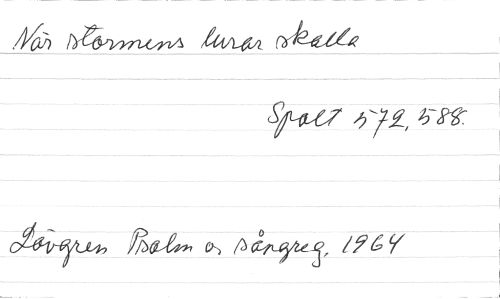 När stormens lurar skalla
Spalt 572, 588.
Lövgren Psalm o sångreg, 1964